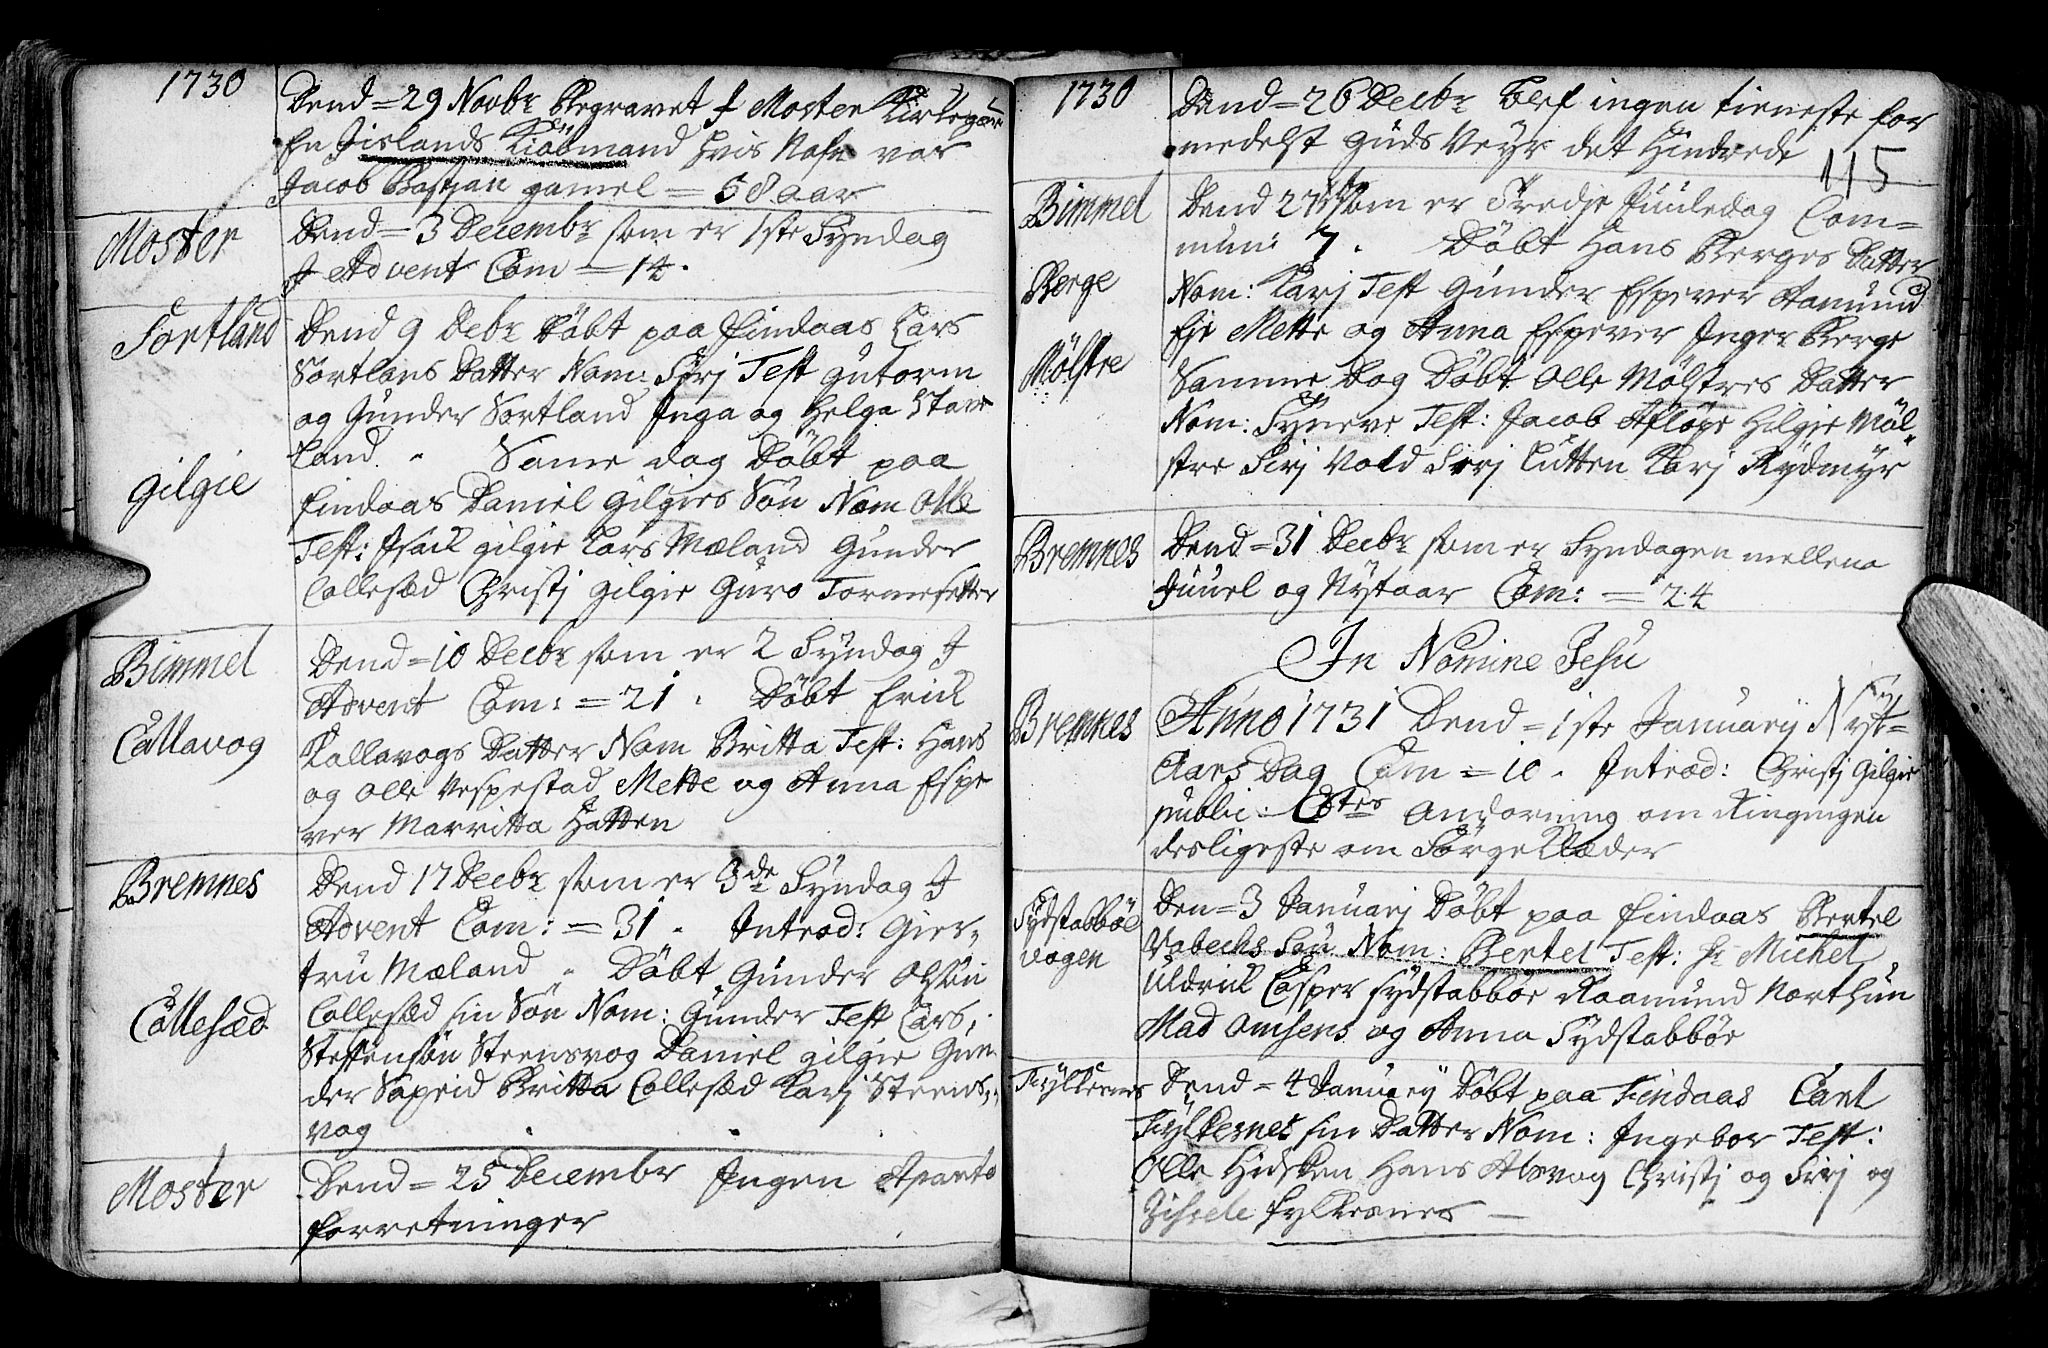 1730
Dend = 29 Novbr Begravet J Moster Kirkegaar
En Jislands Kiöbmand hvis Nafn var
Jacob Bastian gamel = 58 aar
Moster
Dend = 3 Decembr som er 1ste Syndag
J Advent Com = 14.
Sortland
Dend 9 Debr Döbt paa Findaas Lars
Sortlans Datter Nom: Sirj Test Gutorm
og Gunder Sortland Inga og Helga Stave
land. Same dag Döbt paa
Gilgie
Findaas Daniel Gilgies Sön Nom Olle
Test: Isack Gilgie Lars Mæland Gunder
Collesæd Christj Gilgie Guro Tormesetter
Bimmel
Dend = 10 Decbr som er 2 Syndag J
Advent Com: = 21. Döbt Erick
Callavog
Kallavogs Datter Nom Britta Test: Hans
og Olle Vespestad Mette og Anna Espe
ver Marritta Hatten
Bremnes
Dend 17 Decbr som er 3de Syndag J
Advent Com: = 31. Introd: Gier,
tru Mæland. Döbt Gunder Olsön
Collesæd
Collesæd sin Sön Nom: Gunder Test Lars,
Steffensön Steensvog Daniel Gilgie Gun
der Britta Collesæd Karj Steens,,
vog
Moster
Dend = 25 Decembr Ingen Aparte
forretninger
1730
Dend = 26 Decbr blef ingen tieneste for
medelst Guds Veyr det Hindrede
115
Bimmel
Dend 27 som er Tredje Juuledag Com=
mun: 7. Döbt Hans Berges Datter
Berge
Nom: Karj Test Gunder Espever Aamund
Eje Mette og Anna Espever Inger Berge
Mölstre
Samme Dag Döbt Olle Mölstres Datter
Nom: Syneve Test: Jacob Hilgie Möl,,
stre Sirj Vold Sirj Lutten Karj Rydmyr
Bremnes
Dend = 31 Decbr som er Syndagen mellem
Juuel og Nytaar Com: = 24
In Nomine Jesu
Bremnes
Anno 1731 Dend = 1ste Januarij Nyt=
Aars Dag Com = 10. Introd: Christj Gilgie
public: Anordning om Ringingen
desligeste om Sörge Klæder
Sydstabböe
vogen
Den = 3 Januarj Döbt paa Findaas Bertel
Vabechs Sön Nom: Bertel Test: Hr Michel
Uldrick Casper Sydstabböe Raamund Northun
Mad Omsens og Anna Sydstabböe
Fylkesnes
Dend = 4 Januarij Döbt paa Findaas Carl
Fylkesnes sin Datter Nom: Ingebor Test:
Olle Hidsken Hans Alsvog Christj og Sirj og
Zissele Fylkesnes —